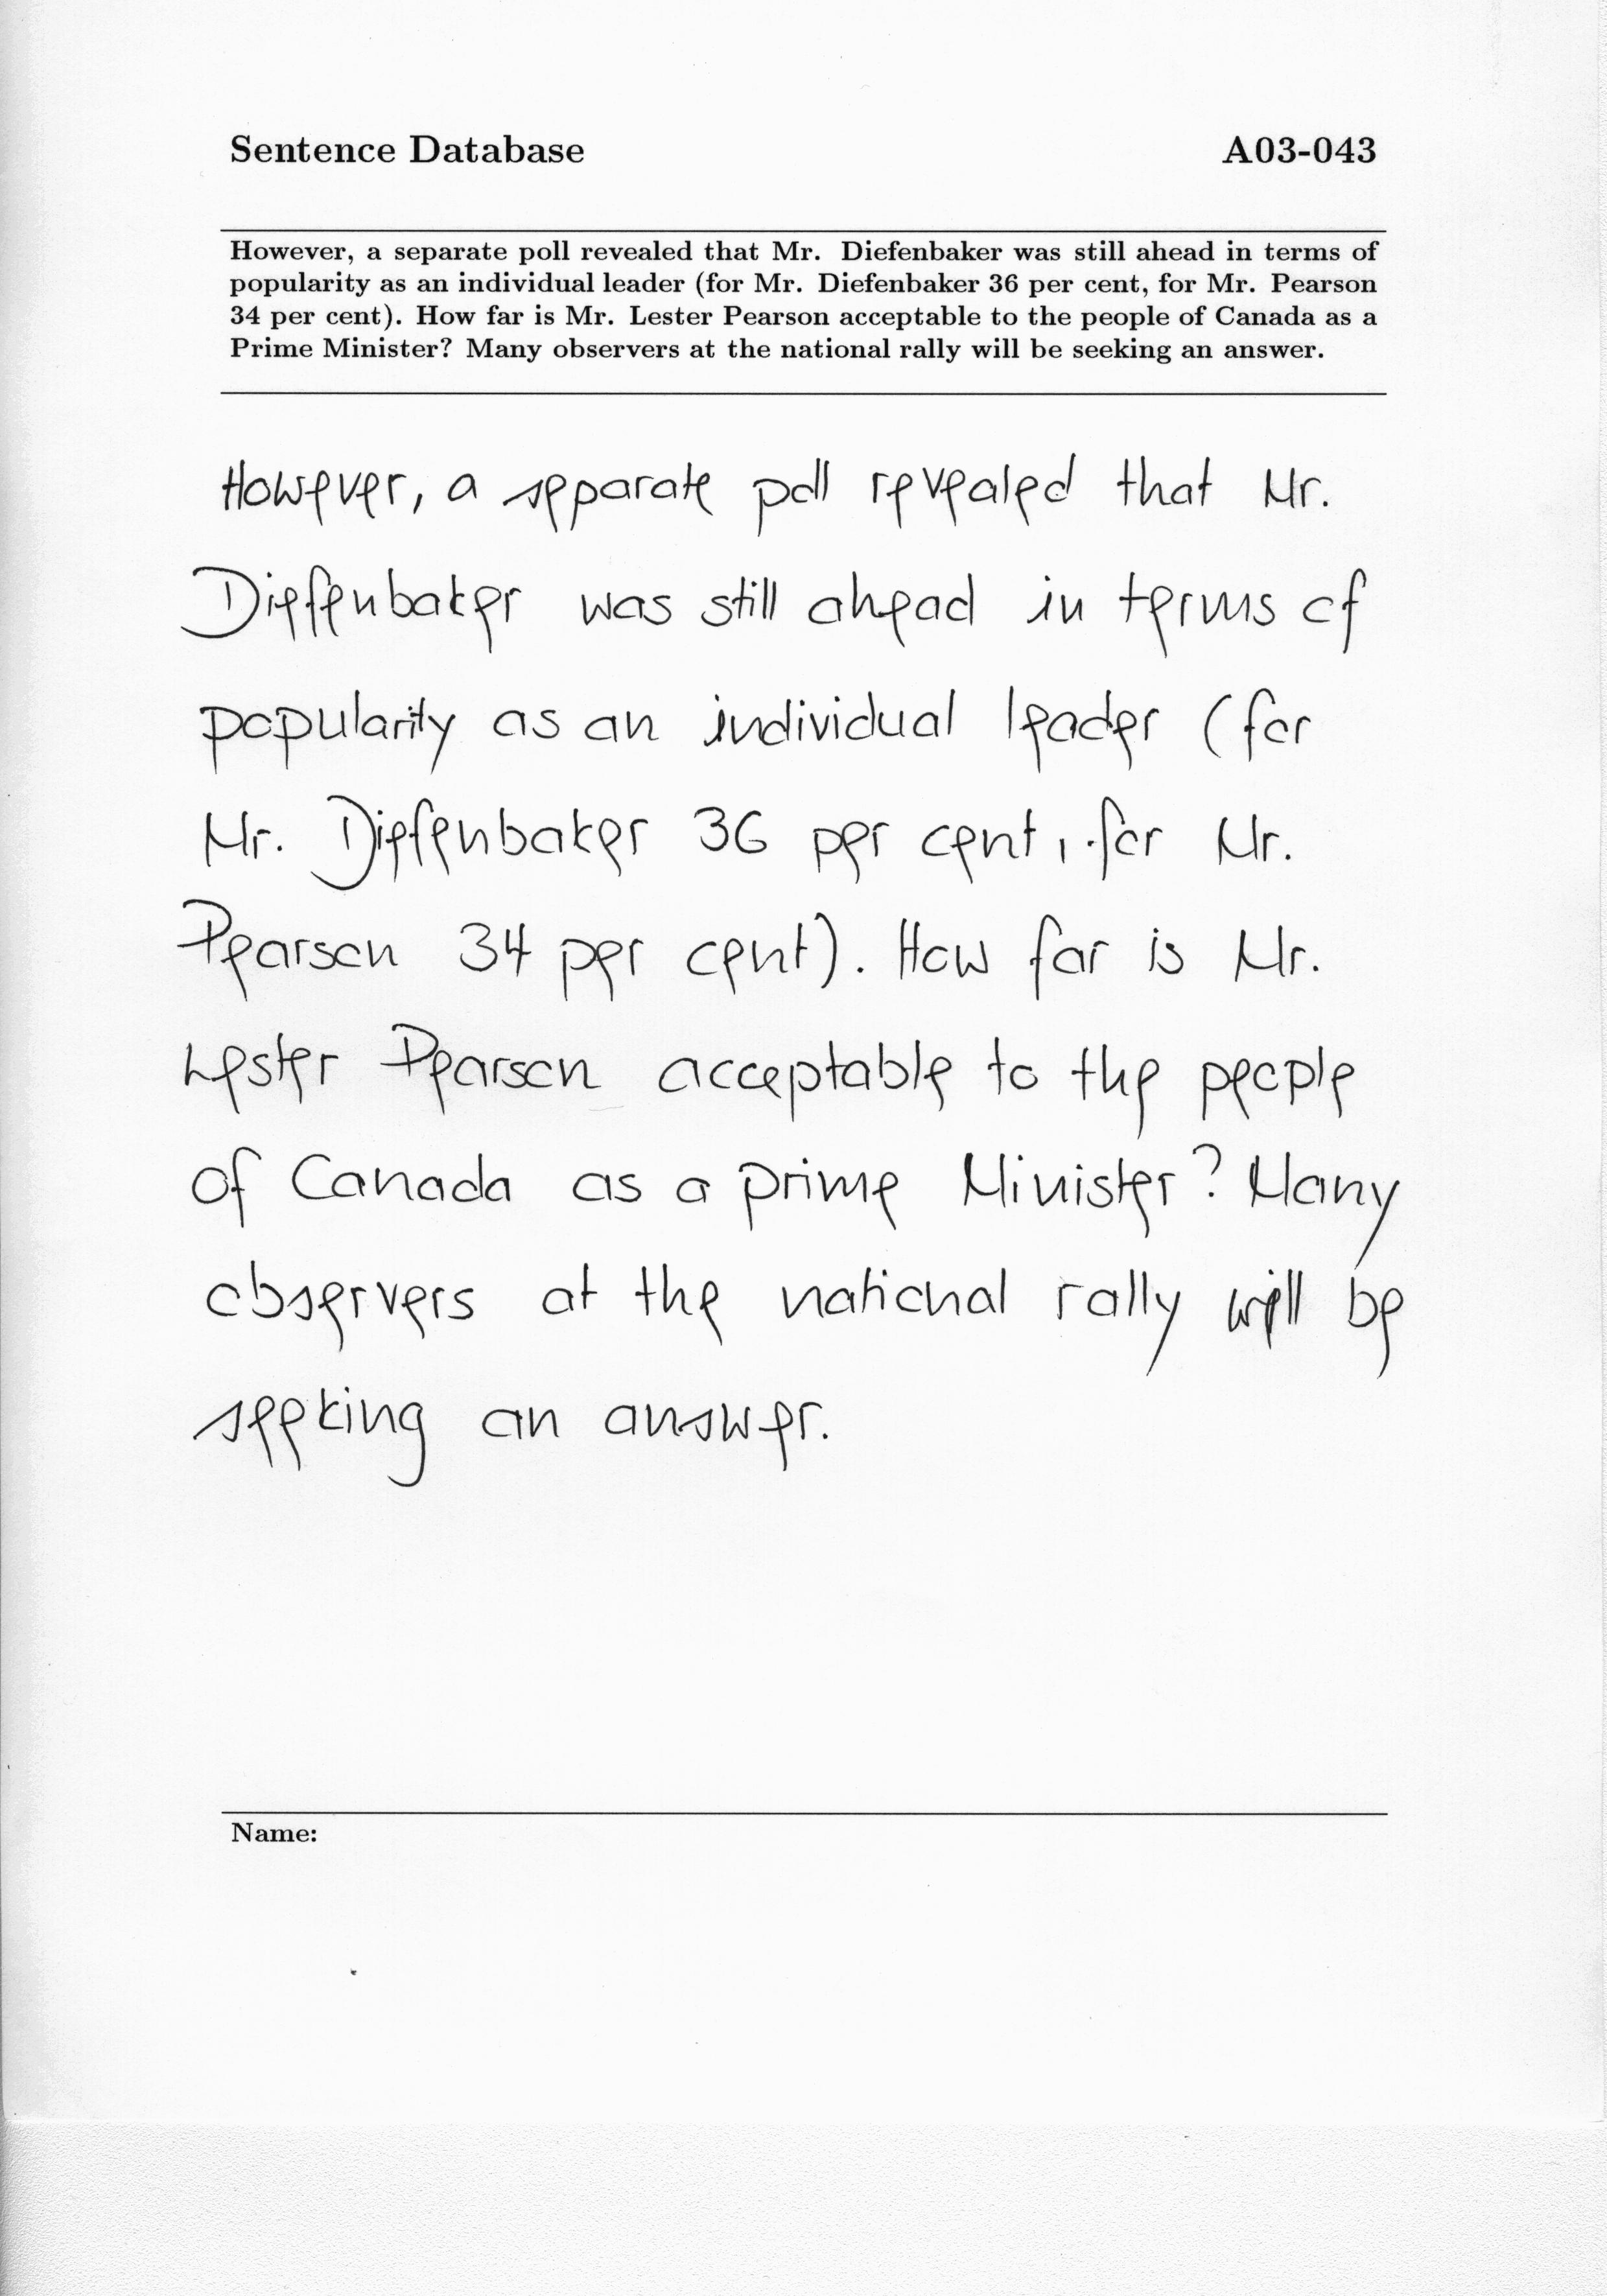 Sentence Database A03-043
However, a separate poll revealed that Mr. Diefenbaker was still ahead in terms of
popularity as an individual leader (for Mr. Diefenbaker 36 per cent, for Mr. Pearson
34 per cent). How far is Mr. Lester Pearson acceptable to the people of Canada as a
Prime Minister? Many observers at the national rally will be seeking an answer.
However, a separate poll revealed that Mr.
Diefenbaker was still ahead in terms of
popularity as an individual leader (for
Mr. Diefenbaker 36 per cent, for Mr.
Pearson 34 per cent). How far is Mr.
Lester Pearson acceptable to the people
of Canada as a prime Minister? Many
observers at the national rally will be
seeking an answer.
Name: